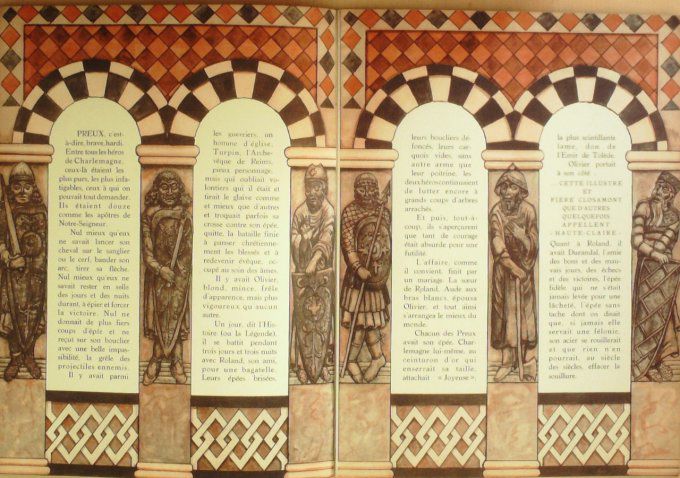 PREUX, c'est-
à-dire, brave, hardi.
Entre tous les héros
de Charlemagne,
ceux-là étaient les
plus purs, les plus infa-
tigables, ceux à qui on
pourrait tout demander.
Ils étaient douze
comme les apôtres de
Notre-Seigneur.
Nul mieux qu'eux
ne savait lancer son
cheval sur le sanglier
ou le cerf, bander son
arc, tirer sa flèche.
Nul mieux qu'eux ne
savait rester en selle
des jours et des nuits
durant, à épier et forcer
la victoire. Nul ne
donnait de plus fiers
coups d'épée et ne
reçut sur son bouclier
avec une belle impas-
sibilité, la grêle des
projectiles ennemis.
Il y avait parmi
les guerriers, un
homme d'église,
Turpin, l'Arche-
vêque de Reims,
pieux personnage,
mais qui oubliait vo-
lontiers qui il était et
tirait le glaive comme
et mieux que d'autres
et troquait parfois sa
crosse contre son épée,
quitte, la bataille finie
à panser chrétienne-
ment les blessés et à
redevenir évêque, oc-
cupé au soin des âmes.
Il y avait Olivier,
blond, mince, frêle
d'apparence, mais plus
vigoureux qu'aucun
autre.
Un jour dit l'His-
toire (ou la Légende),
il se battit pendant
trois jours et trois nuits
avec Roland, son ami,
pour une bagatelle.
Leurs épées brisées,
leurs boucliers dé-
foncés, leurs car-
quois vides, sans
autre arme que
leur poitrine, les
deux héros continuaient
de lutter encore à
grands coups d'arbres
arrachés.
Et puis, tout-à-
coup, ils s'aperçurent
que tant de courage
était absurde pour une
futilité.
L'affaire, comme
il convient, finit par
un mariage. La sœur
de Roland, Aude aux
bras blancs, épousa
Olivier, et tout ainsi
s'arrangea le mieux du
monde.
Chacun des Preux
avait son épée. Char-
lemagne lui-même, au
ceinturon d'or qui
enserrait sa taille,
attachait « Joyeuse ».
la plus scintillante
lame, don de
l'Emir de Tolède.
Olivier portait
à son côté :
...CETTE ILLUSTRE
ET
FIÈRE CLOSAMONT
QUE D'AUTRES
QUELQUEFOIS
APPELLENT
-HAUTE-CLAIRE-
Quant à Roland, il
avait Durandal, l'amie
des bons et des mau-
vais jours, des échecs
et des victoires, l'épée
fidèle qui ne s'était
jamais levée pour une
lâcheté, l'épée sans
tache dont on disait
que, si jamais elle
servait une félonie,
son acier se rouillerait
et que rien n'en
pourrait, au siècle
des siècles, effacer la
souillure.